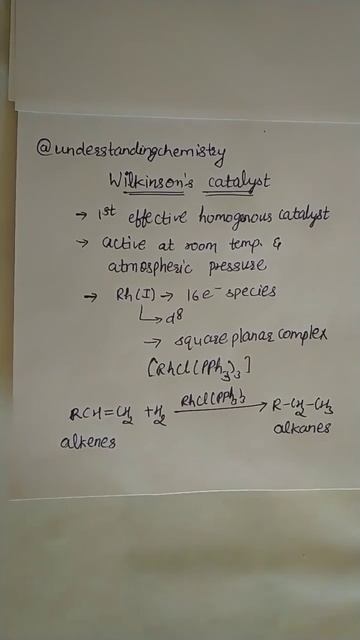 @understandingchemistry
Wilkinson's catalyst
→ 1st effective homogenous catalyst
→ active at room temp. &
atmospheric pressure
→ Rh(I) → 16e⁻ species
↳ d⁸
→ square planar complex
[RhCl(PPh₃)₃]
RhCl(PPh₃)₃
RCH=CH₂ + H₂ → R-CH₂-CH₃
alkenes alkanes